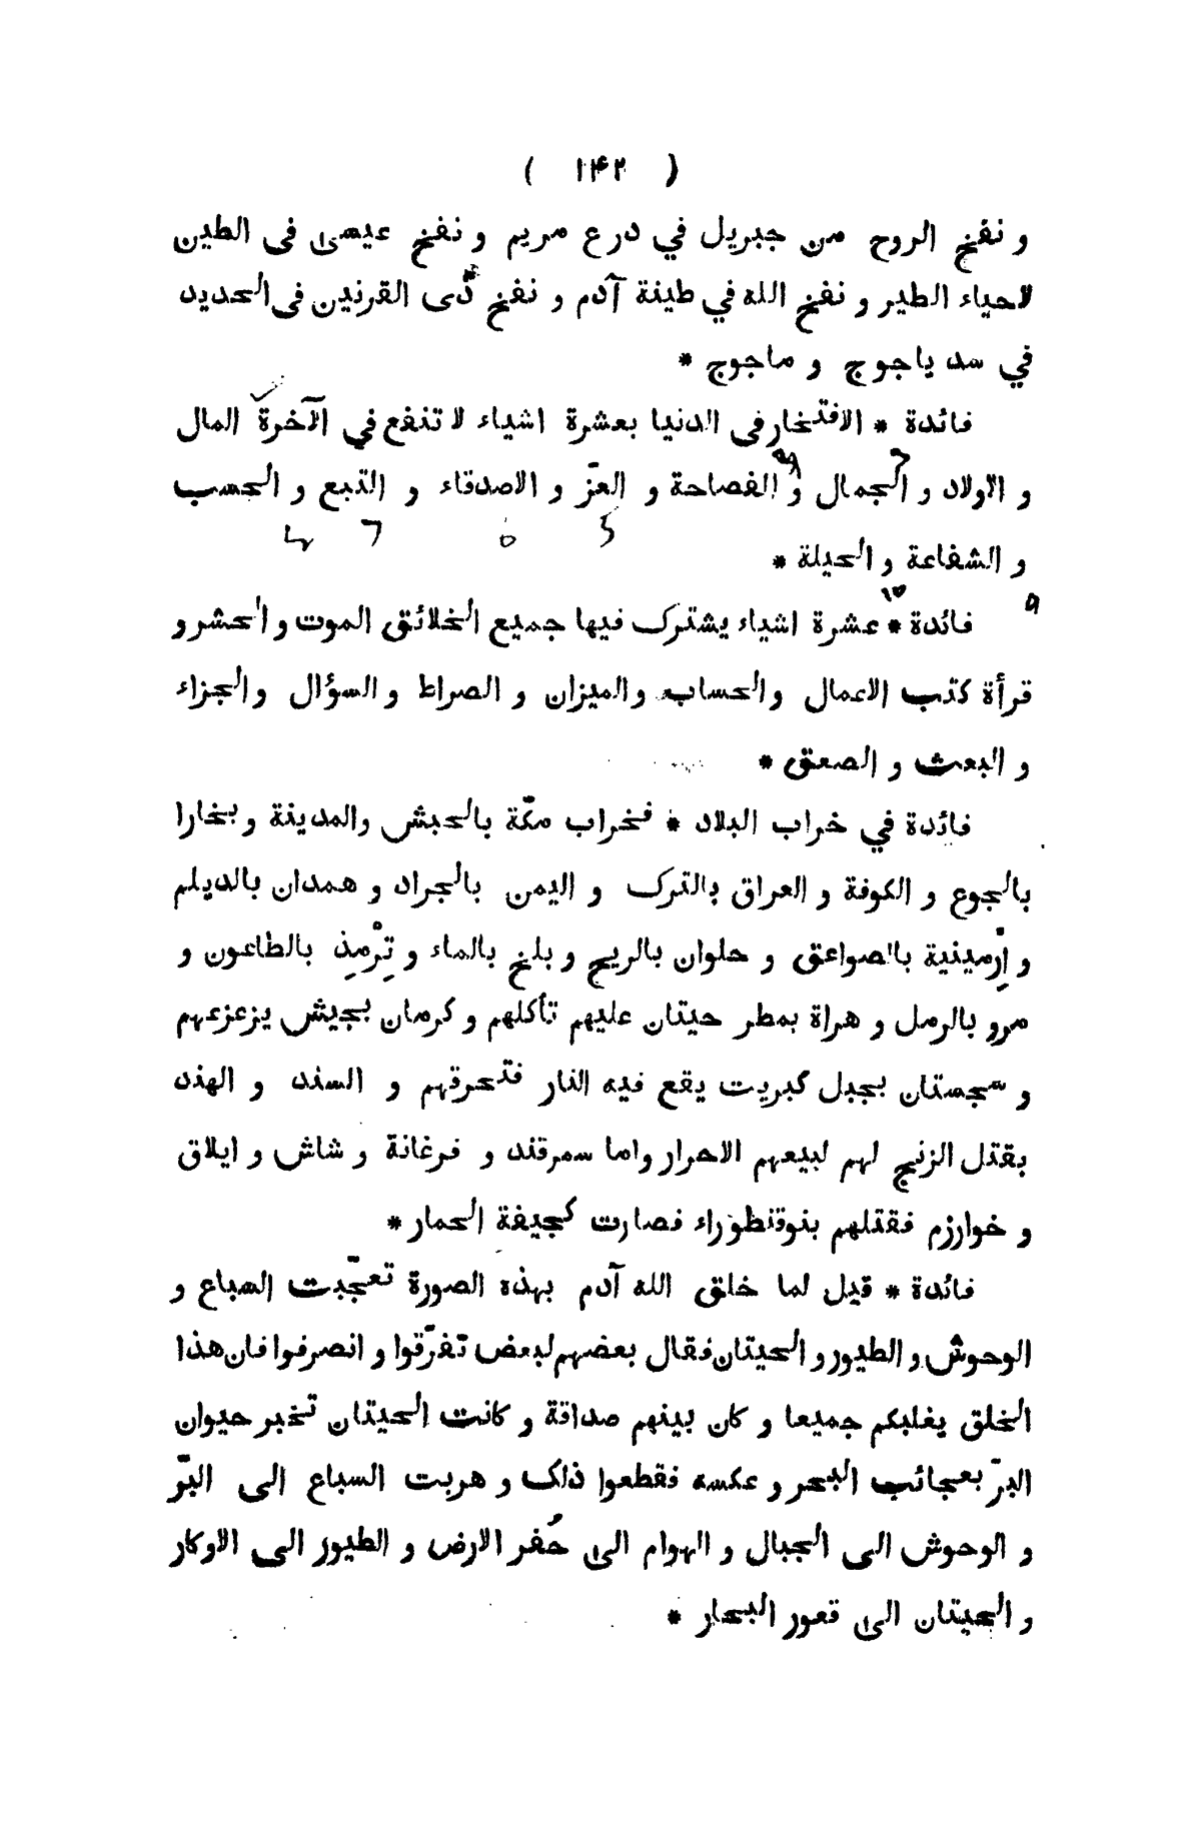 ( ۱۴۲ )
و نفخ الروح من جبريل في درع مريم و نفخ عيسى فى الطين
لاحياء الطير و نفخ الله في طينة آدم و نفخ ذى القرنين فى الحديد
في سد ياجوج و ماجوج *
فائدة * الافتخار فى الدنيا بعشرة اشياء لا تنفع في الآخرة المال
و الاولاد و الجمال و الفصاحة و العزّ و الاصدقاء و التبع و الحسب
و الشفاعة و الحيلة *
فائدة * عشرة اشياء يشترك فيها جميع الخلائق الموت و الحشر و
قرأة كتب الاعمال والحساب والميزان و الصراط و السؤال والجزاء
و البعث و الصعق *
فائدة في خراب البلاد * فخراب مكّة بالحبش والمدينة و بخارا
بالجوع و الكوفة و العراق بالترك و اليمن بالجراد و همدان بالديلم
و اِرْمينية بالصواعق و حلوان بالريح و بلخ بالماء و تِرْمِذ بالطاعون و
مرو بالرمل و هراة بمطر حيتان عليهم تأكلهم و كرمان بجيش يزعزعهم
و سجستان بجبل كبريت يقع فيه النار فتحرقهم و السند و الهند
بقتل الزنج لهم لبيعهم الاحرار واما سمرقند و فرغانة و شاش و ايلاق
و خوارزم فقتلهم بنوقنطوراء فصارت كجيفة الحمار *
فائدة * قيل لما خلق الله آدم بهذه الصورة تعجّبت السباع و
الوحوش و الطيور و الحيتان فقال بعضهم لبعض تفرّقوا و انصرفوا فان هذا
الخلق يغلبكم جميعا و كان بينهم صداقة و كانت الحيتان تخبر حيوان
البرّ بعجائب البحر و عكسه فقطعوا ذلك و هربت السباع الى البرّ
و الوحوش الى الجبال و الهوام الى حُفر الارض و الطيور الى الاوكار
و الحيتان الى قعور البحار *